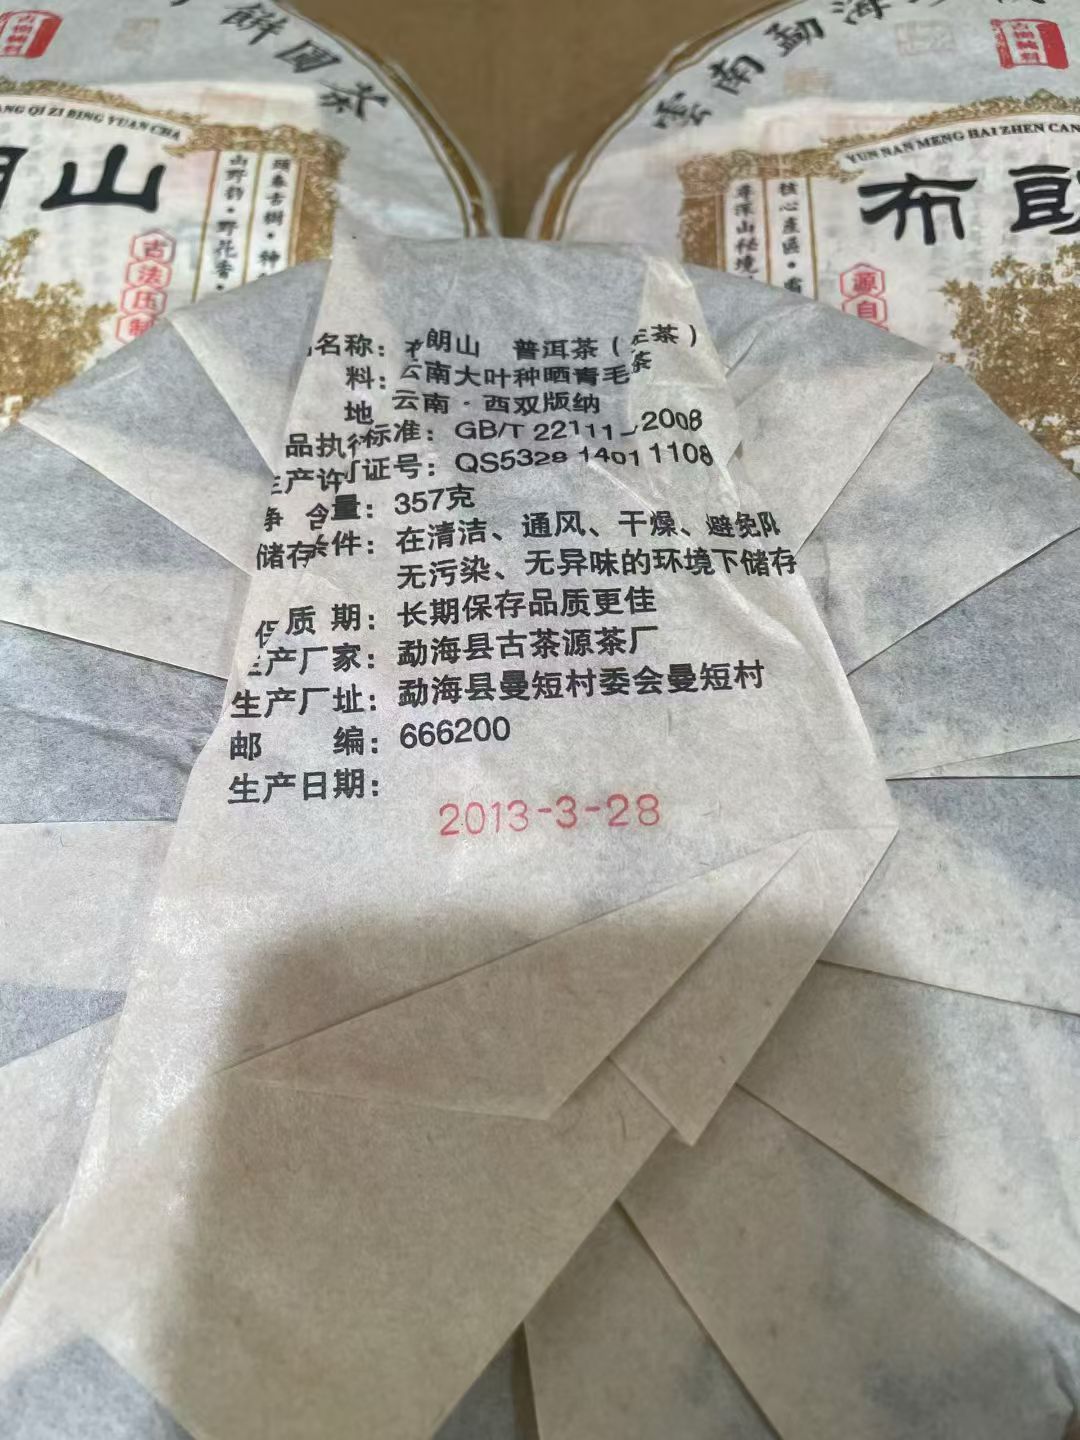 餅圓茶
雲南勐海
古樹純料
古樹純料
QI ZI BING YUAN CHA
YUN NAN MENG HAI ZHEN CAN
山
布朗
頭春古樹·神
山野韵·野花香·
核心產區·
尋深山秘境
古法压制
源自
名称：布朗山 普洱茶（生茶）
料：云南大叶种晒青毛茶
地 云南·西双版纳
品执行标准：GB/T 22111-2008
生产许可证号：QS5328 1401 1108
净含量：357克
储存条件：在清洁、通风、干燥、避免阳
无污染、无异味的环境下储存
保质期：长期保存品质更佳
生产厂家：勐海县古茶源茶厂
生产厂址：勐海县曼短村委会曼短村
邮编：666200
生产日期：
2013-3-28